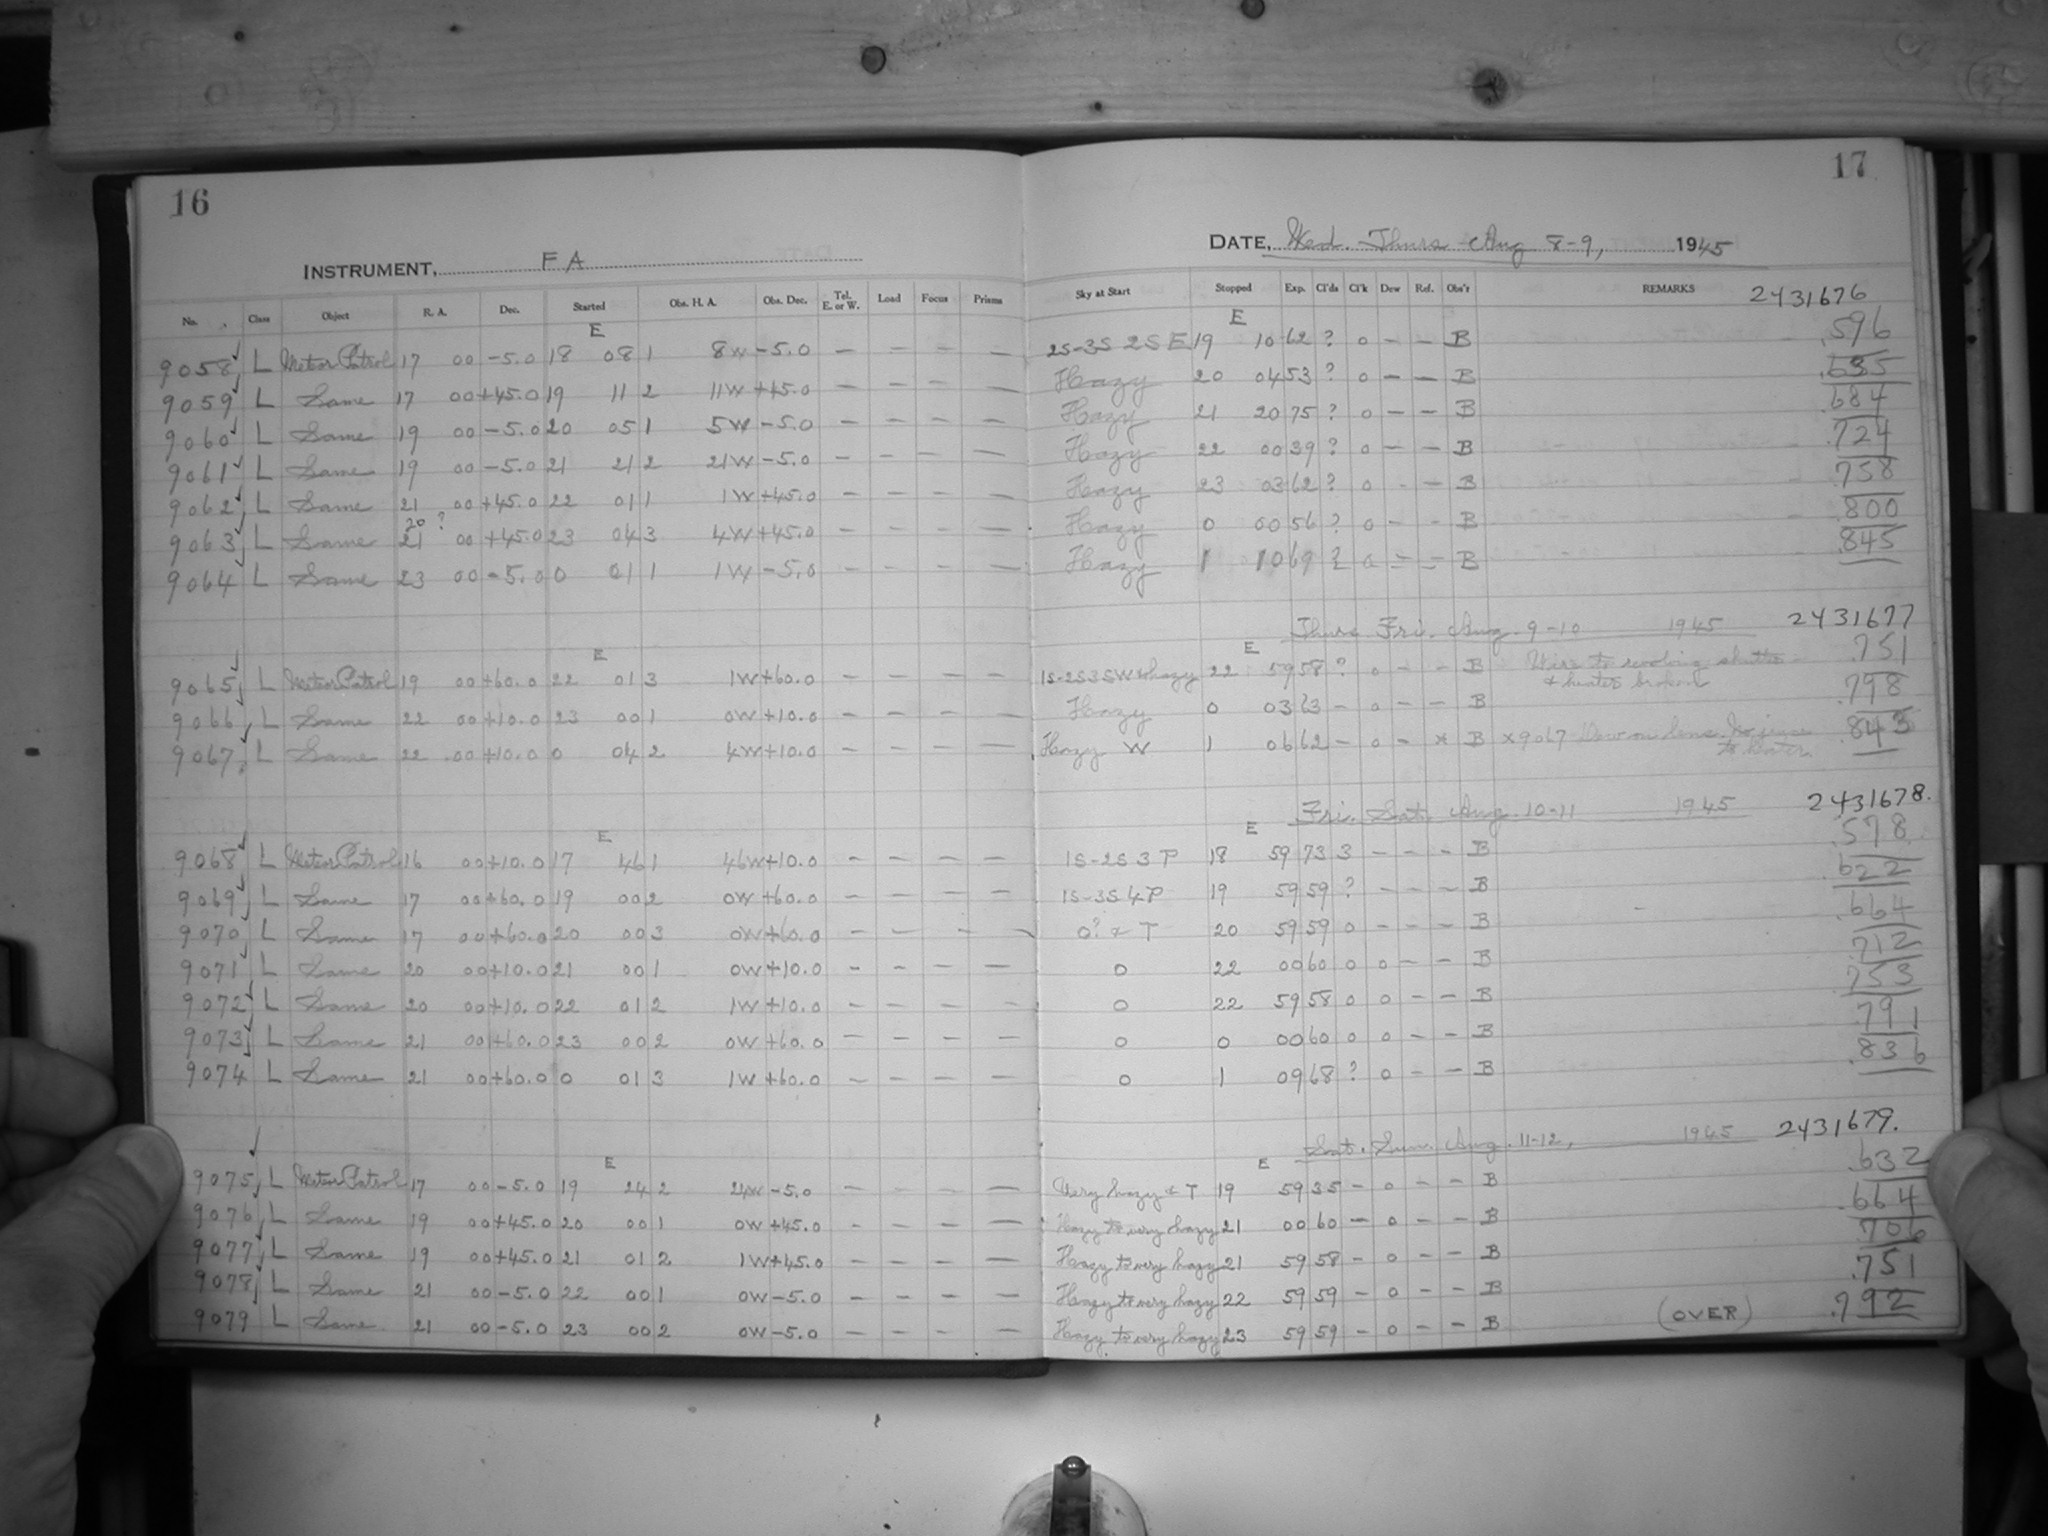 16
INSTRUMENT, FA
No. Class Object R. A. Dec. Started Obs. H. A. Obs. Dec. Tel. E. or W. Load Focus Prisms
E
9058 L Meteor Patrol 17 00 -5.0 18 08 1 8W -5.0 — — — —
9059 L Same 17 00 +45.0 19 11 2 11W +45.0 — — — —
9060 L Same 19 00 -5.0 20 05 1 5W -5.0 — — — —
9061 L Same 19 00 -5.0 21 21 2 21W -5.0 — — — —
9062 L Same 21 00 +45.0 22 01 1 1W +45.0 — — — —
20 ?
9063 L Same 21 00 +45.0 23 04 3 4W +45.0 — — — —
9064 L Same 23 00 -5.0 0 01 1 1W -5.0 — — — —
E
9065 L Meteor Patrol 19 00 +60.0 22 01 3 1W +60.0 — — — —
9066 L Same 22 00 +10.0 23 00 1 0W +10.0 — — — —
9067 L Same 22 00 +10.0 0 04 2 4W +10.0 — — — —
E
9068 L Meteor Patrol 16 00 +10.0 17 46 1 46W +10.0 — — — —
9069 L Same 17 00 +60.0 19 00 2 0W +60.0 — — — —
9070 L Same 17 00 +60.0 20 00 3 0W +60.0 — — — —
9071 L Same 20 00 +10.0 21 00 1 0W +10.0 — — — —
9072 L Same 20 00 +10.0 22 01 2 1W +10.0 — — — —
9073 L Same 21 00 +60.0 23 00 2 0W +60.0 — — — —
9074 L Same 21 00 +60.0 0 01 3 1W +60.0 — — — —
E
9075 L Meteor Patrol 17 00 -5.0 19 24 2 24W -5.0 — — — —
9076 L Same 19 00 +45.0 20 00 1 0W +45.0 — — — —
9077 L Same 19 00 +45.0 21 01 2 1W +45.0 — — — —
9078 L Same 21 00 -5.0 22 00 1 0W -5.0 — — — —
9079 L Same 21 00 -5.0 23 00 2 0W -5.0 — — — —
17
DATE, Wed. Thurs Aug 8-9, 1945
Sky at Start Stopped Exp. Cl'ds Cl'k Dew Ref. Obs'r REMARKS 2431676
E
2S-3S 2S E 19 10 62 ? 0 — — B .596
Hazy 20 04 53 ? 0 — — B .635
Hazy 21 20 75 ? 0 — — B .684
Hazy 22 00 39 ? 0 — — B .724
Hazy 23 03 62 ? 0 — — B .758
Hazy 0 00 56 ? 0 — — B .800
Hazy 1 10 69 ? 0 — — B .845
Thurs Fri. Aug. 9-10 1945 2431677
E
1S-2S3SW & hazy 22 59 58 ? 0 — — B Wire to revolving shutter .751
& heater broken
Hazy 0 03 63 — 0 — — B .798
Hazy W 1 06 62 — 0 — x B x9067 Dew on lens. No juice .843
to heater.
Fri. Sat. Aug. 10-11 1945 2431678.
E
1S-2S 3 P 18 59 73 3 — — — B .578
1S-3S 4P 19 59 59 ? — — — B .622
0? & T 20 59 59 0 — — — B .664
0 22 00 60 0 0 — — B .712
0 22 59 58 0 0 — — B .753
0 0 00 60 0 0 — — B .791
0 1 09 68 ? 0 — — B .836
Sat. Sun. Aug. 11-12, 1945 2431679.
E
Very hazy & T 19 59 35 — 0 — — B .632
Hazy to very hazy 21 00 60 — 0 — — B .664
Hazy to very hazy 21 59 58 — 0 — — B .706
Hazy to very hazy 22 59 59 — 0 — — B .751
Hazy to very hazy 23 59 59 — 0 — — B (OVER) .792